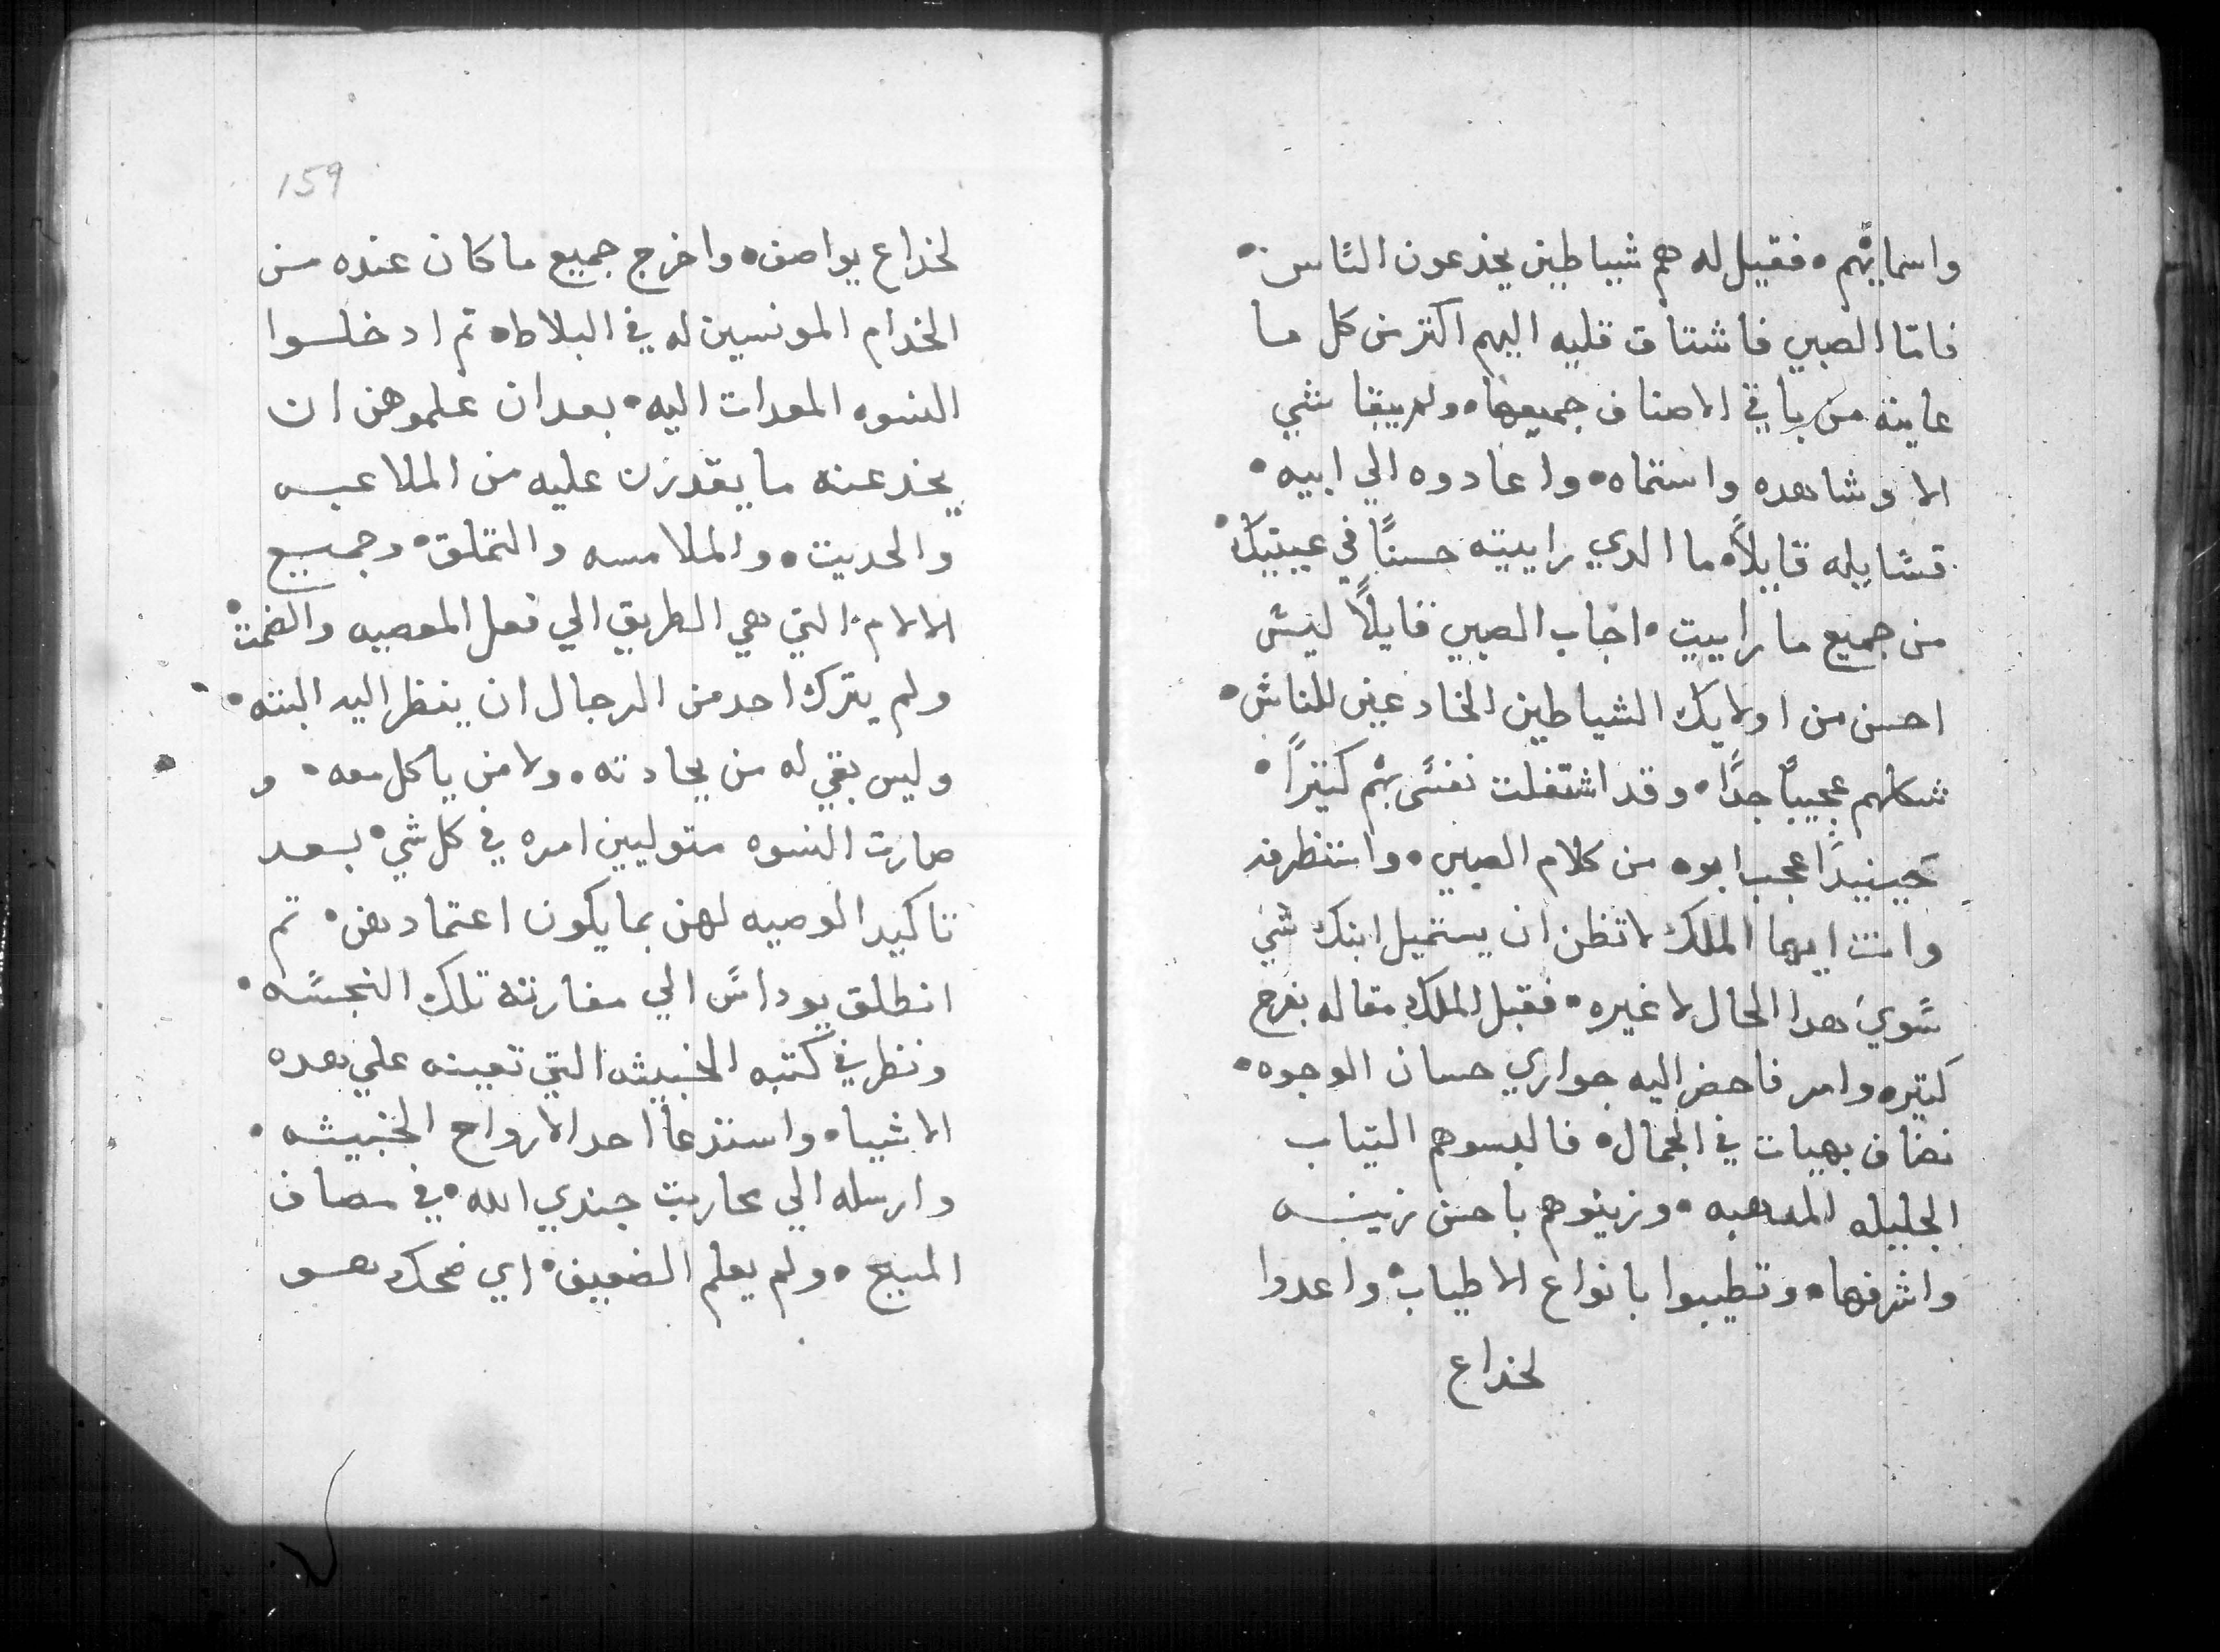 واسمايهم • فقيل له هم شياطين يخدعون الناس •
فامّا الصبي فاشتاق قلبه اليهم اكتر من كل ما
عاينه من باقي الاصناف جميعها • ولم يبقا شي
الا وشاهده واستماه • واعادوه الي ابيه •
فسايله قايلاً • ما الدي راييته حسنًا في عينيك •
من جميع ما راييت • اجاب الصبي قايلاً ليس
احسن من اولايك الشياطين الخادعين للناس •
شكلهم عجيبًا جدًا • وقد اشتغلت نفسي بهم كتيرًا •
حينيدًا عجب ابوه من كلام الصبي •
وانت ايها الملك لا تظن ان يستميل ابنك شي
سوي هدا الحال لا غيره • فقبل الملك مقاله بفرح
كتيره وامر فاحضر اليه جواري حسان الوجوه •
نضاف بهيات في الجمال • فالبسوهم التياب
الجليله المدهبه • وزينوهم باحسن زينه
واشرفها • وتطيبوا بانواع الاطياب • واعدوا
لخداع
159
لخداع يواصف • واخرج جميع ما كان عنده من
الخدام المونسين له في البلاط • تم ادخلوا
النسوه المعدات اليه • بعد ان علموهن ان
يخدعنه ما يقدرن عليه من الملاعبه
والحديت • والملامسه والتملق • وجميع
الالام • التي هي الطريق الي فعل المعصيه
ولم يترك احد من الرجال ان ينظر اليه البته •
وليس بقي له من يحادته • ولا من ياكل معه • و
صارت النسوه متوليين امره في كل شي • بعد
تاكيد الوصيه لهن بما يكون اعتمادهن • تم
انطلق يوداس الي مغارته تلك النجسه •
ونظر في كتبه الخبيثه التي تعينه علي هده
الاشياء • واستدعا احد الارواح الخبيثه •
وارسله الي محاربت جندي الله • في مصاف
المسيح • ولم يعلم الضعيف • اي ضحك هو